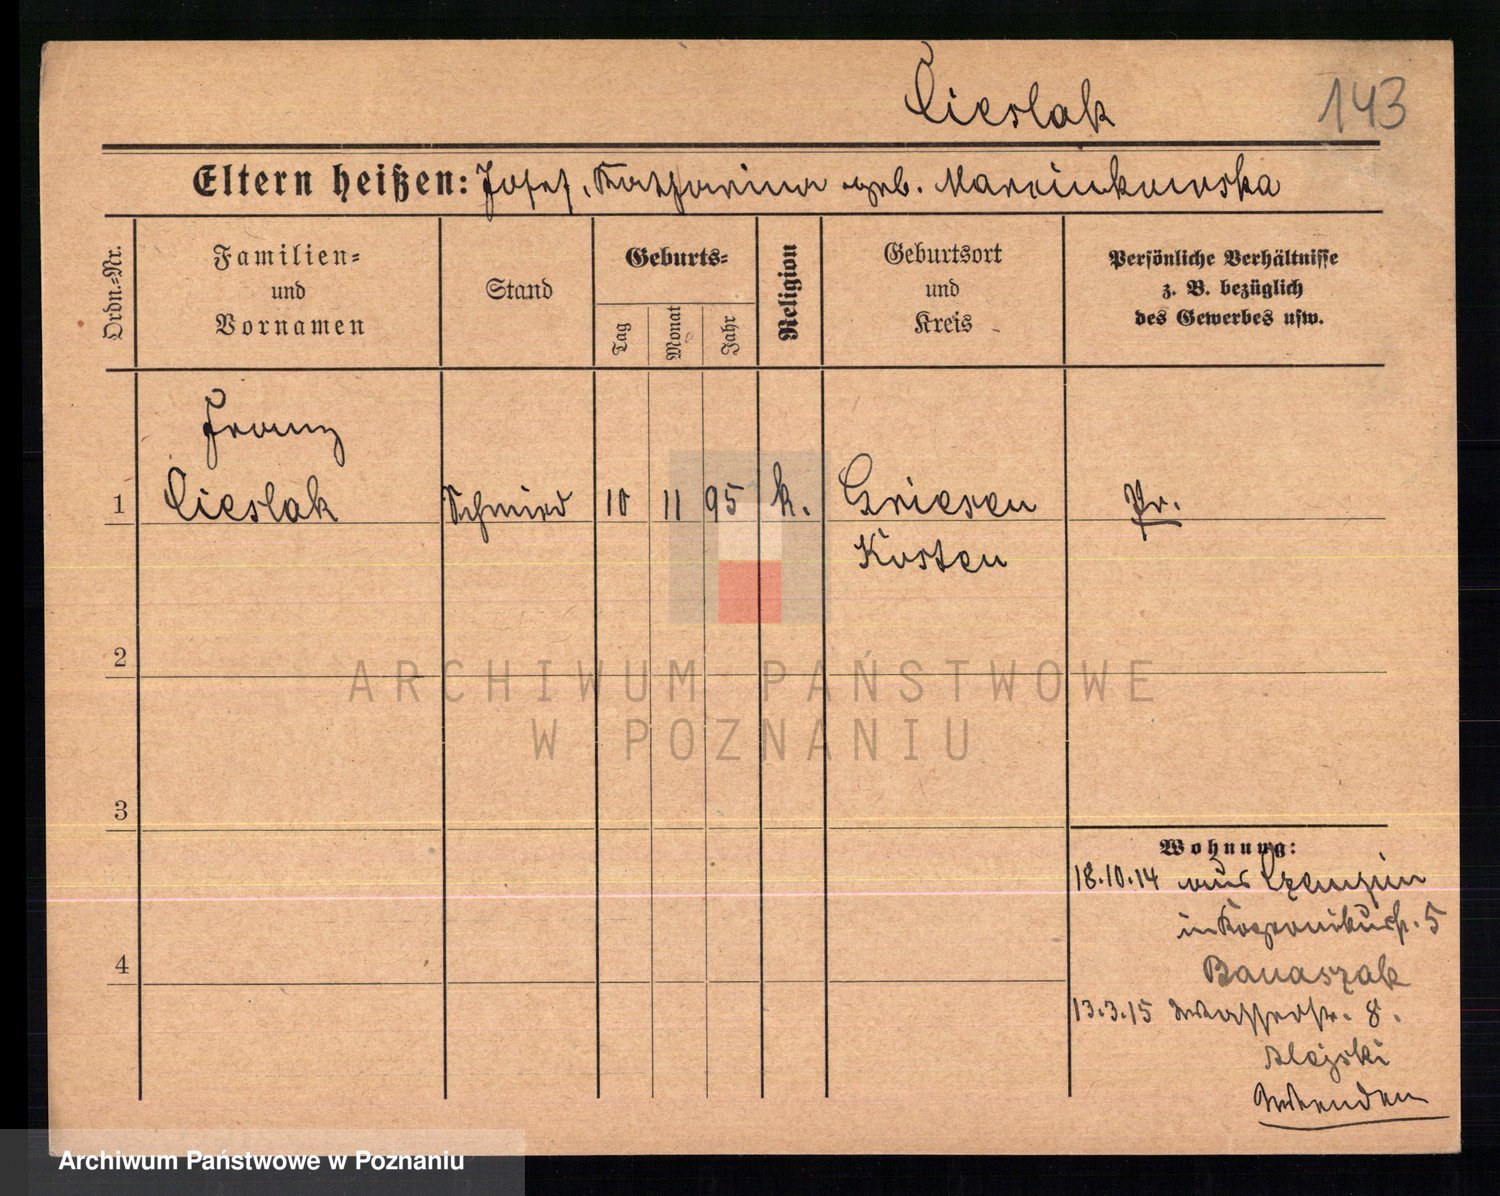 Cieslak
143
Eltern heißen: Josef, Katharina geb. Marcinkowska
Ordn.-Nr.
Familien-
und
Vornamen
Stand
Geburts-
Tag
Monat
Jahr
Religion
Geburtsort
und
Kreis
Persönliche Verhältnisse
z. B. bezüglich
des Gewerbes usw.
Franz
1 Cieslak Schmied 10 11 95 k. Griesen Pr.
Kosten
2
3
4
Wohnung:
18.10.14 aus Czempin
in Kopernikusstr. 5
Banaszak
13.3.15 Wasserstr. 8.
Wenden
ARCHIWUM PAŃSTWOWE
W POZNANIU
Archiwum Państwowe w Poznaniu